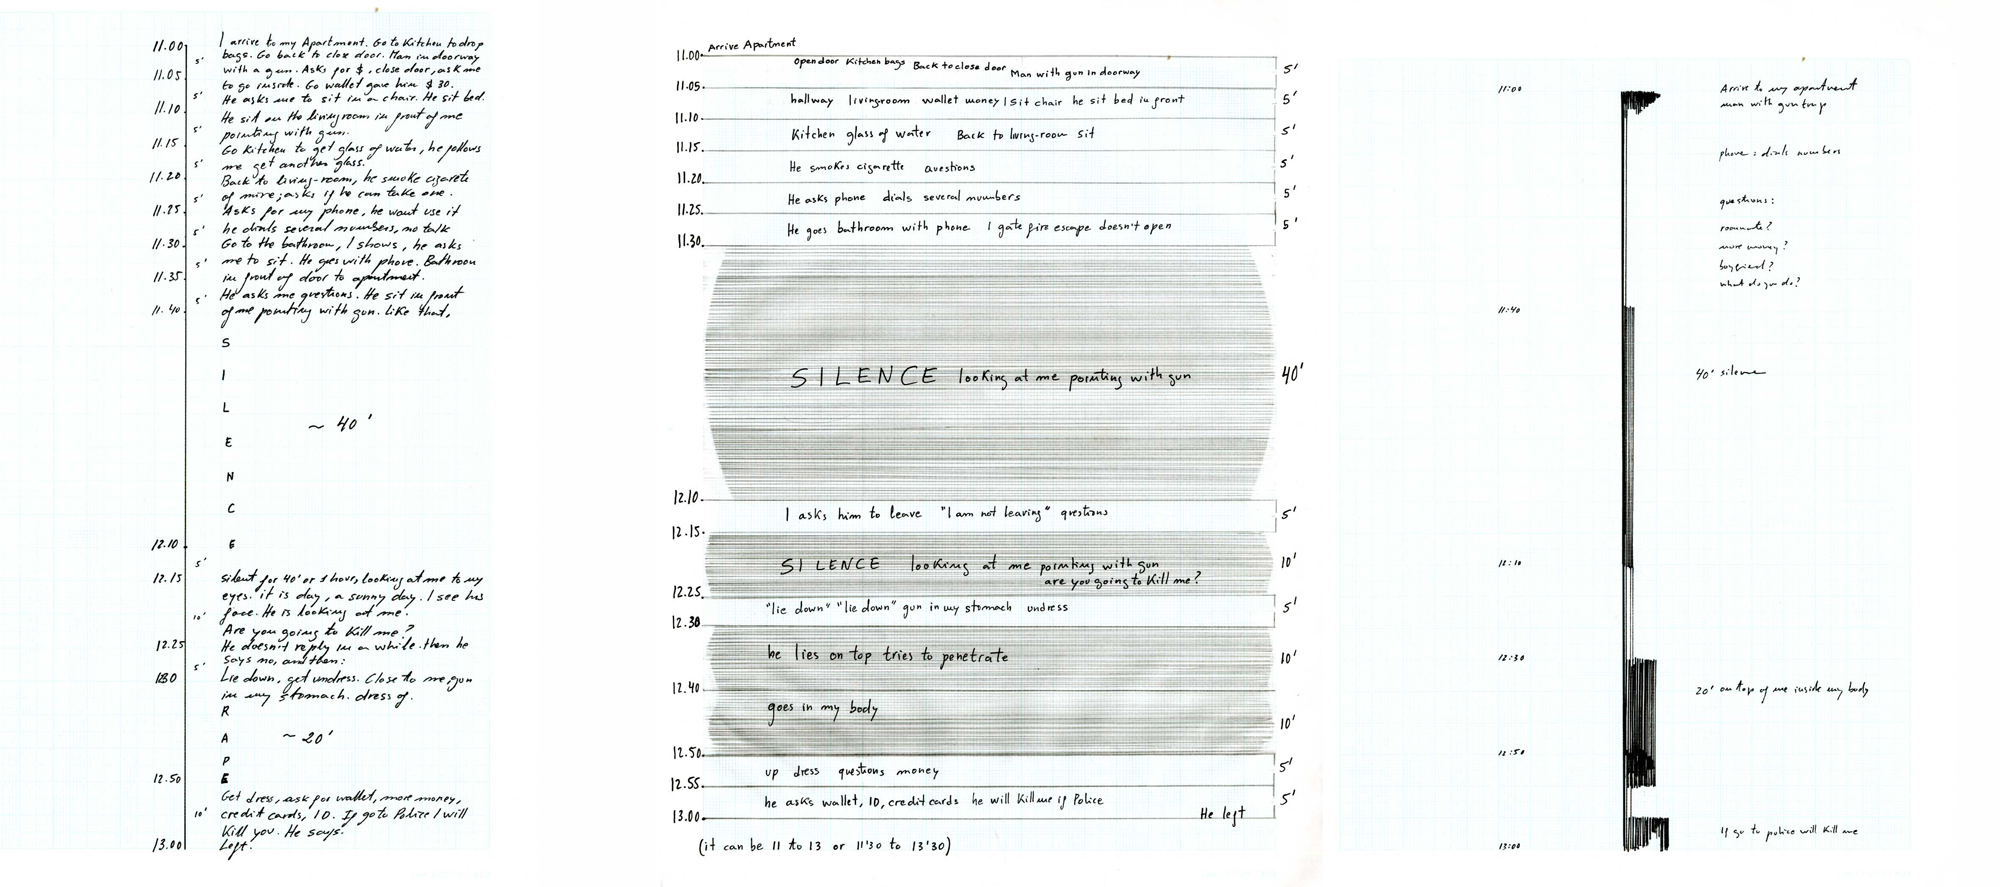 11.00
I arrive to my Apartment. Go to Kitchen to drop
5'
bags. Go back to close door. Man in doorway
11.05
with a gun. Asks for $, close door, ask me
to go inside. Go wallet gave him $30.
5'
He asks me to sit in a chair. He sit bed.
11.10
He sit on the livingroom in front of me
5'
pointing with gun.
11.15
Go Kitchen to get glass of water, he follows
5'
me get another glass.
11.20
Back to living-room, he smoke cigarete
5'
of mine; asks if he can take one.
11.25
Asks for my phone, he want use it
5'
he dials several numbers, no talk
11.30
Go to the bathroom, I shows, he asks
5'
me to sit. He goes with phone. Bathroom
11.35
in front of door to apartment.
5'
He asks me questions. He sit in front
11.40
of me pointing with gun. like that,
S
I
L
~ 40'
E
N
C
12.10
E
5'
12.15
silent for 40' or 1 hour, looking at me to my
eyes. it is day, a sunny day. I see his
10'
face. He is looking at me.
Are you going to Kill me?
12.25
He doesn't reply in a while. then he
5'
says no, and then:
1230
Lie down, get undress. Close to me, gun
in my stomach. dress of.
R
A
~ 20'
P
12.50
E
Get dress, ask for wallet, more money,
10'
credit cards, ID. If go to Police I will
Kill you. He says.
13.00
Left.
Arrive Apartment
11.00
Open door Kitchen bags Back to close door Man with gun in doorway
5'
11.05
hallway livingroom wallet money I sit chair he sit bed in front
5'
11.10
Kitchen glass of water Back to living-room sit
5'
11.15
He smokes cigarette questions
5'
11.20
He asks phone dials several numbers
5'
11.25
He goes bathroom with phone I gate fire escape doesn't open
5'
11.30
SILENCE looking at me pointing with gun
40'
12.10
I asks him to leave "I am not leaving" questions
5'
12.15
SILENCE looking at me pointing with gun
10'
are you going to Kill me?
12.25
"lie down" "lie down" gun in my stomach undress
5'
12.30
he lies on top tries to penetrate
10'
12.40
goes in my body
10'
12.50
up dress questions money
5'
12.55
he asks wallet, ID, credit cards he will Kill me if Police
5'
13.00
He left
(it can be 11 to 13 or 11'30 to 13'30)
11:00
Arrive to my apartment
man with gun
phone: dials numbers
questions:
roommate?
more money?
boyfriend?
what do you do?
11:40
40' silence
12:10
12:30
20' on top of me inside my body
12:50
If go to police will Kill me
13:00